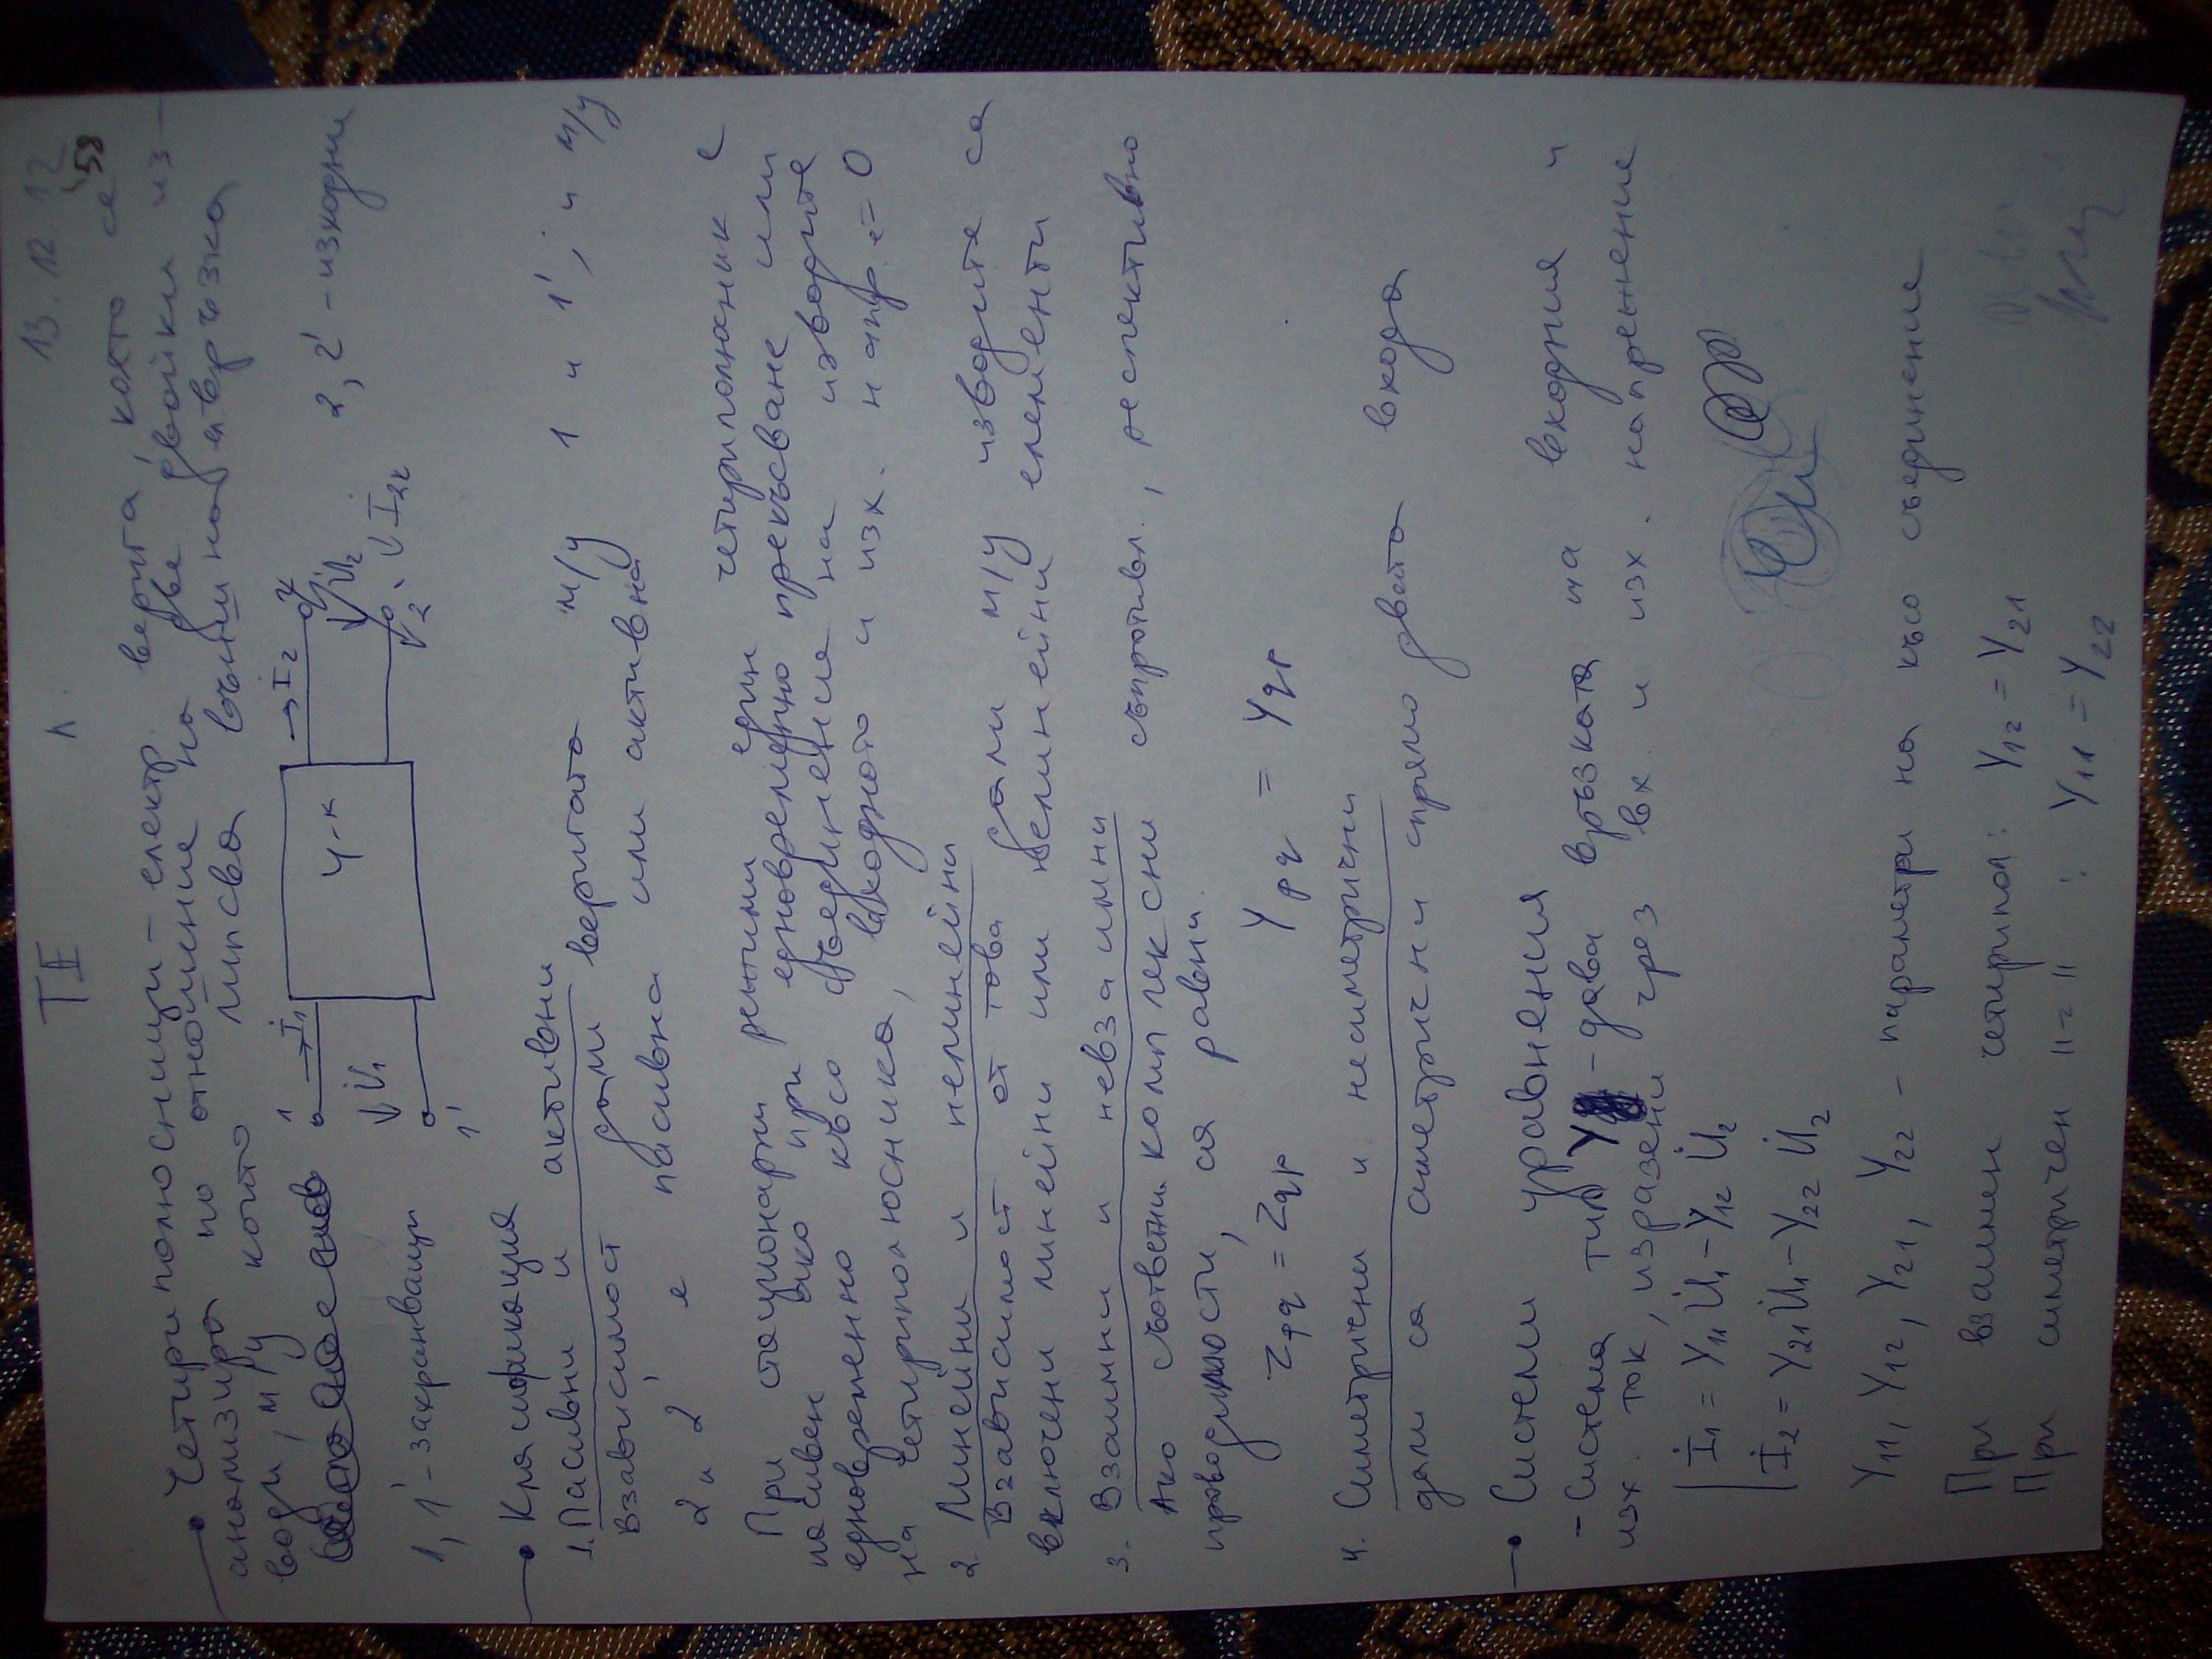 ТЕ Л. 13.12.12
53
• Четириполюсници - електр. верига, която се
анализира по отношение на две двойки из-
води, м/у които липсва външна ел. връзка
1 İ₁ Ч-к I₂ 2
U̇₁ U̇₂
1' 2' I₂к
1, 1' - захранващи 2, 2' - изходни
• Класификация
1. Пасивни и активни
В зависимост дали веригата м/у 1 и 1', и м/у
2 и 2' е пасивна или активна
При стационарни режими един четириполюсник е
пасивен ако при едновременно прекъсване или
едновременно късо съединение на изводите
на четириполюсника, входното и изх. напр. е = 0
2. Линейни и нелинейни
В зависимост от това дали м/у изводите са
включени линейни или нелинейни елементи
3. Взаимни и невзаимни
Ако съответни комплексни съпротивл., респективно
проводимости, са равни.
Zpq = Zqp Ypq = Yqp
4. Симетрични и несиметрични
дали са симетрични спрямо двата входа
• Системи уравнения
- Система тип Y - дава връзката на входния и
изх. ток, изразени чрез вх и изх. напрежение
İ₁ = Y₁₁ U̇₁ - Y₁₂ U̇₂
İ₂ = Y₂₁ U̇₁ - Y₂₂ U̇₂
Y₁₁, Y₁₂, Y₂₁, Y₂₂ - параметри на късо съединение
При взаимен четирипол: Y₁₂ = Y₂₁
При симетричен "=" : Y₁₁ = Y₂₂